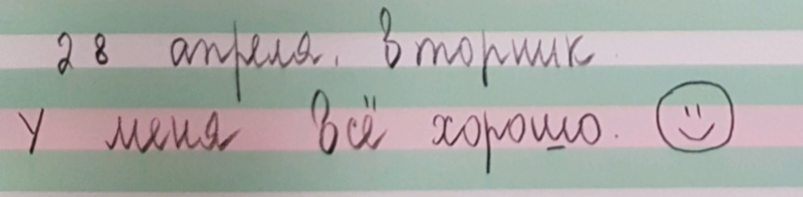 28 апреля. Вторник.
У меня всё хорошо.